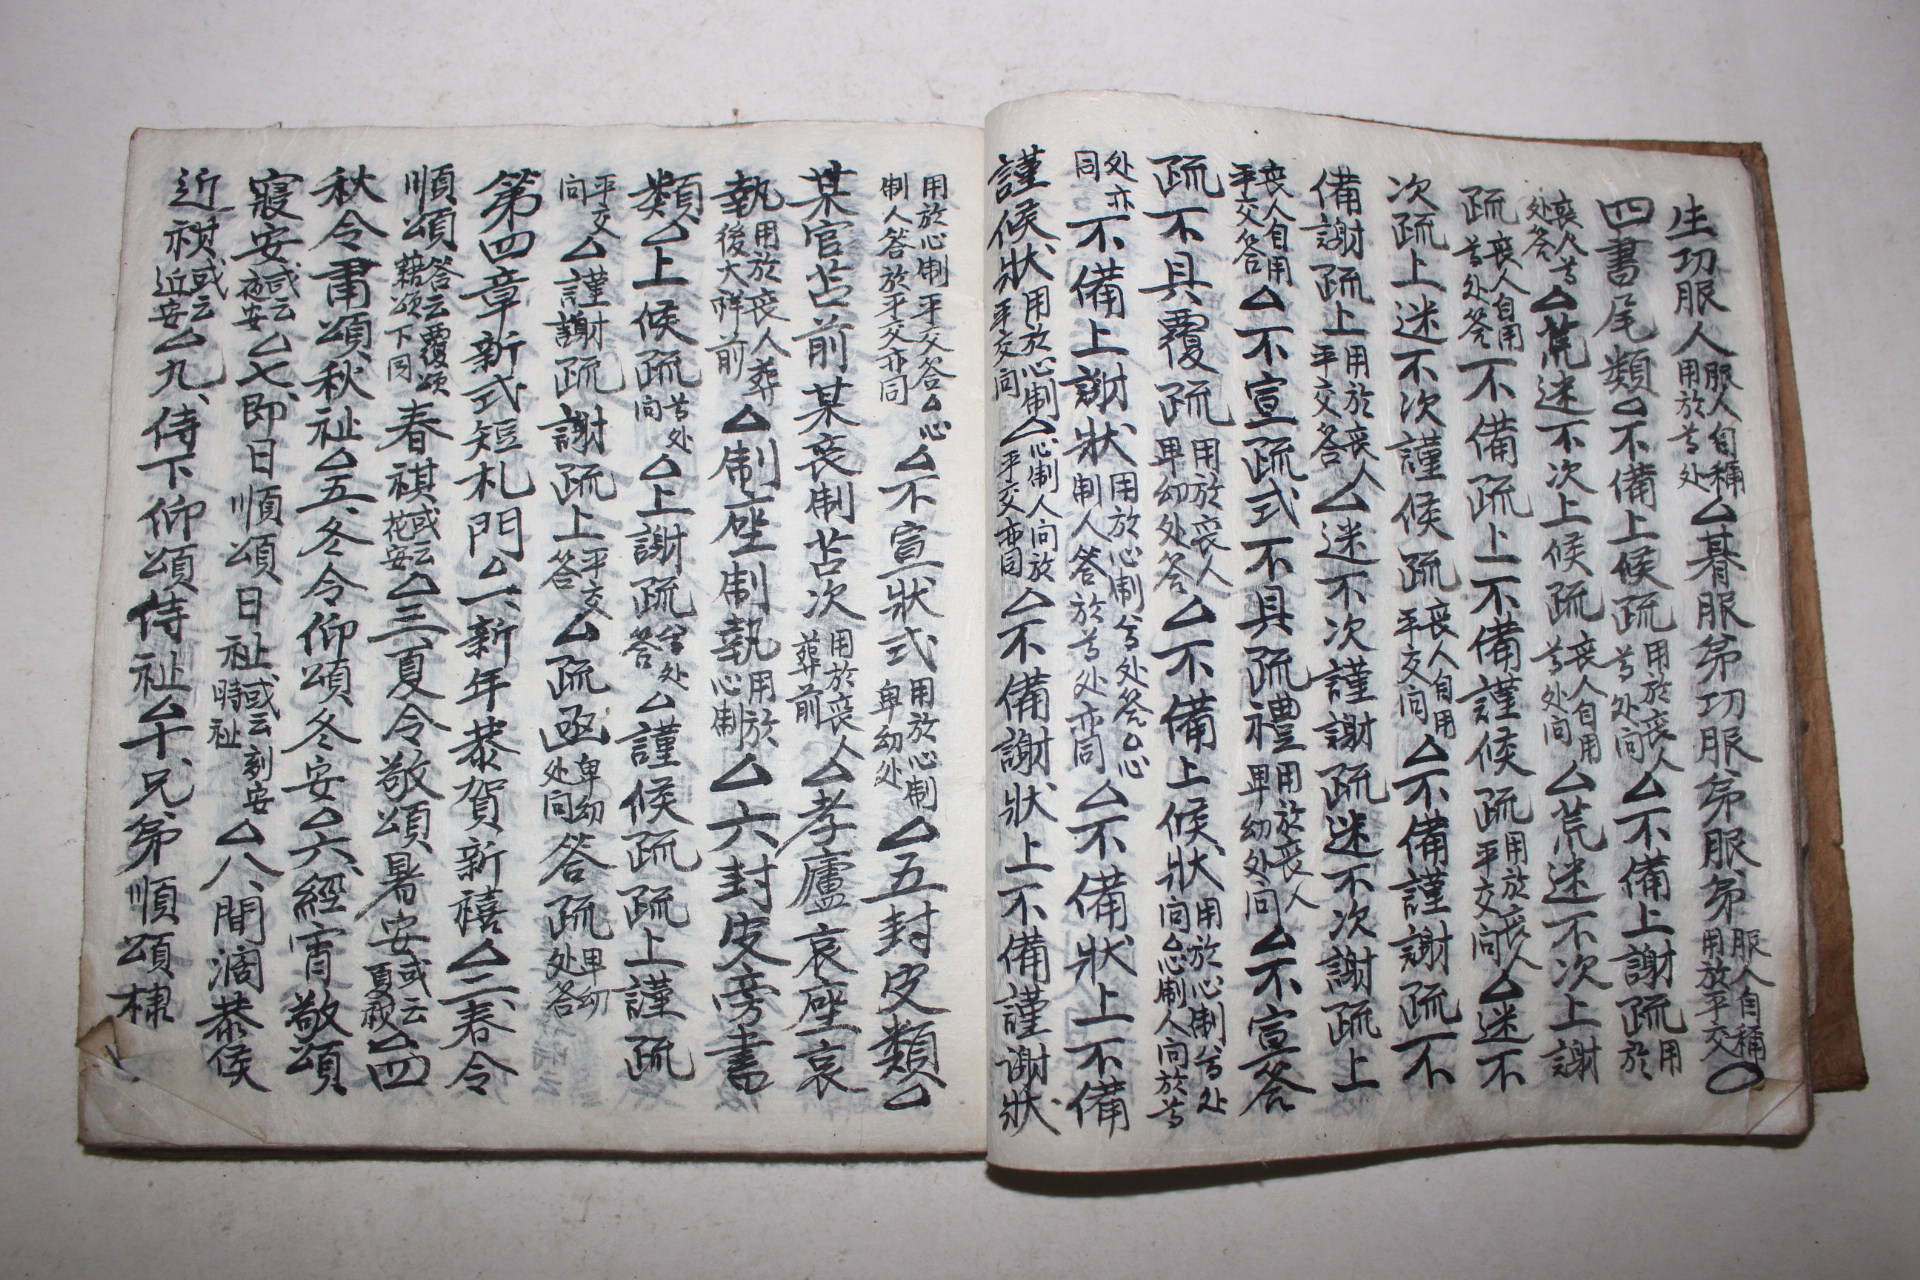 生功服人服人自稱用於尊处△朞服弟功服弟服弟服人自稱用放平交○
四書尾類△不備上候疏用於喪人尊处问△不備上謝疏用於
喪人尊处答△荒迷不次上候疏喪人自用尊处问△荒迷不次上謝
疏喪人自用尊处答不備疏上不備謹候疏用放喪人平交问△迷不
次疏上迷不次謹候疏喪人自用平交问△不備謹謝疏不
備謝疏上用於喪人平交答△迷不次謹謝疏迷不次謝疏上
喪人自用平交答△不宣疏式不具疏禮用放喪人卑幼处问△不宣答
疏不具覆疏用放喪人卑幼处答△不備上候狀用放心制尊处问△心制人问於尊
处亦同不備上謝狀用放心制尊处答△心制人答於尊处亦同△不備狀上不備
謹候狀用放心制平交问△心制人问放平交亦同△不備謝狀上不備謹謝狀
用放心制平交答△心制人答於平交亦同△不宣狀式用放心制卑幼处△五封皮類△
某官苫前某喪制苫次用於喪人葬前△孝廬哀座哀
執用放喪人葬後大祥前△制座制執用放心制△六封皮旁書
類△上候疏尊处问△上謝疏尊处答△謹候疏疏上謹疏
平交问△謹謝疏謝疏上平交答△疏函卑幼处问答疏卑幼处答
第四章新式短札門△一、新年恭賀新禧△二、春令
順頌答云覆頌藉頌下同春祺或云花安△三、夏令敬頌暑安或云夏祺△四
秋令肅頌秋祉△五、冬令仰頌冬安△六、經宵敬頌
寢安或云夜安△七、即日順頌日祉或云刻安時祉△八、間濶恭侯
近祺或云近安△九、侍下仰頌侍祉△十、兄弟順頌棣